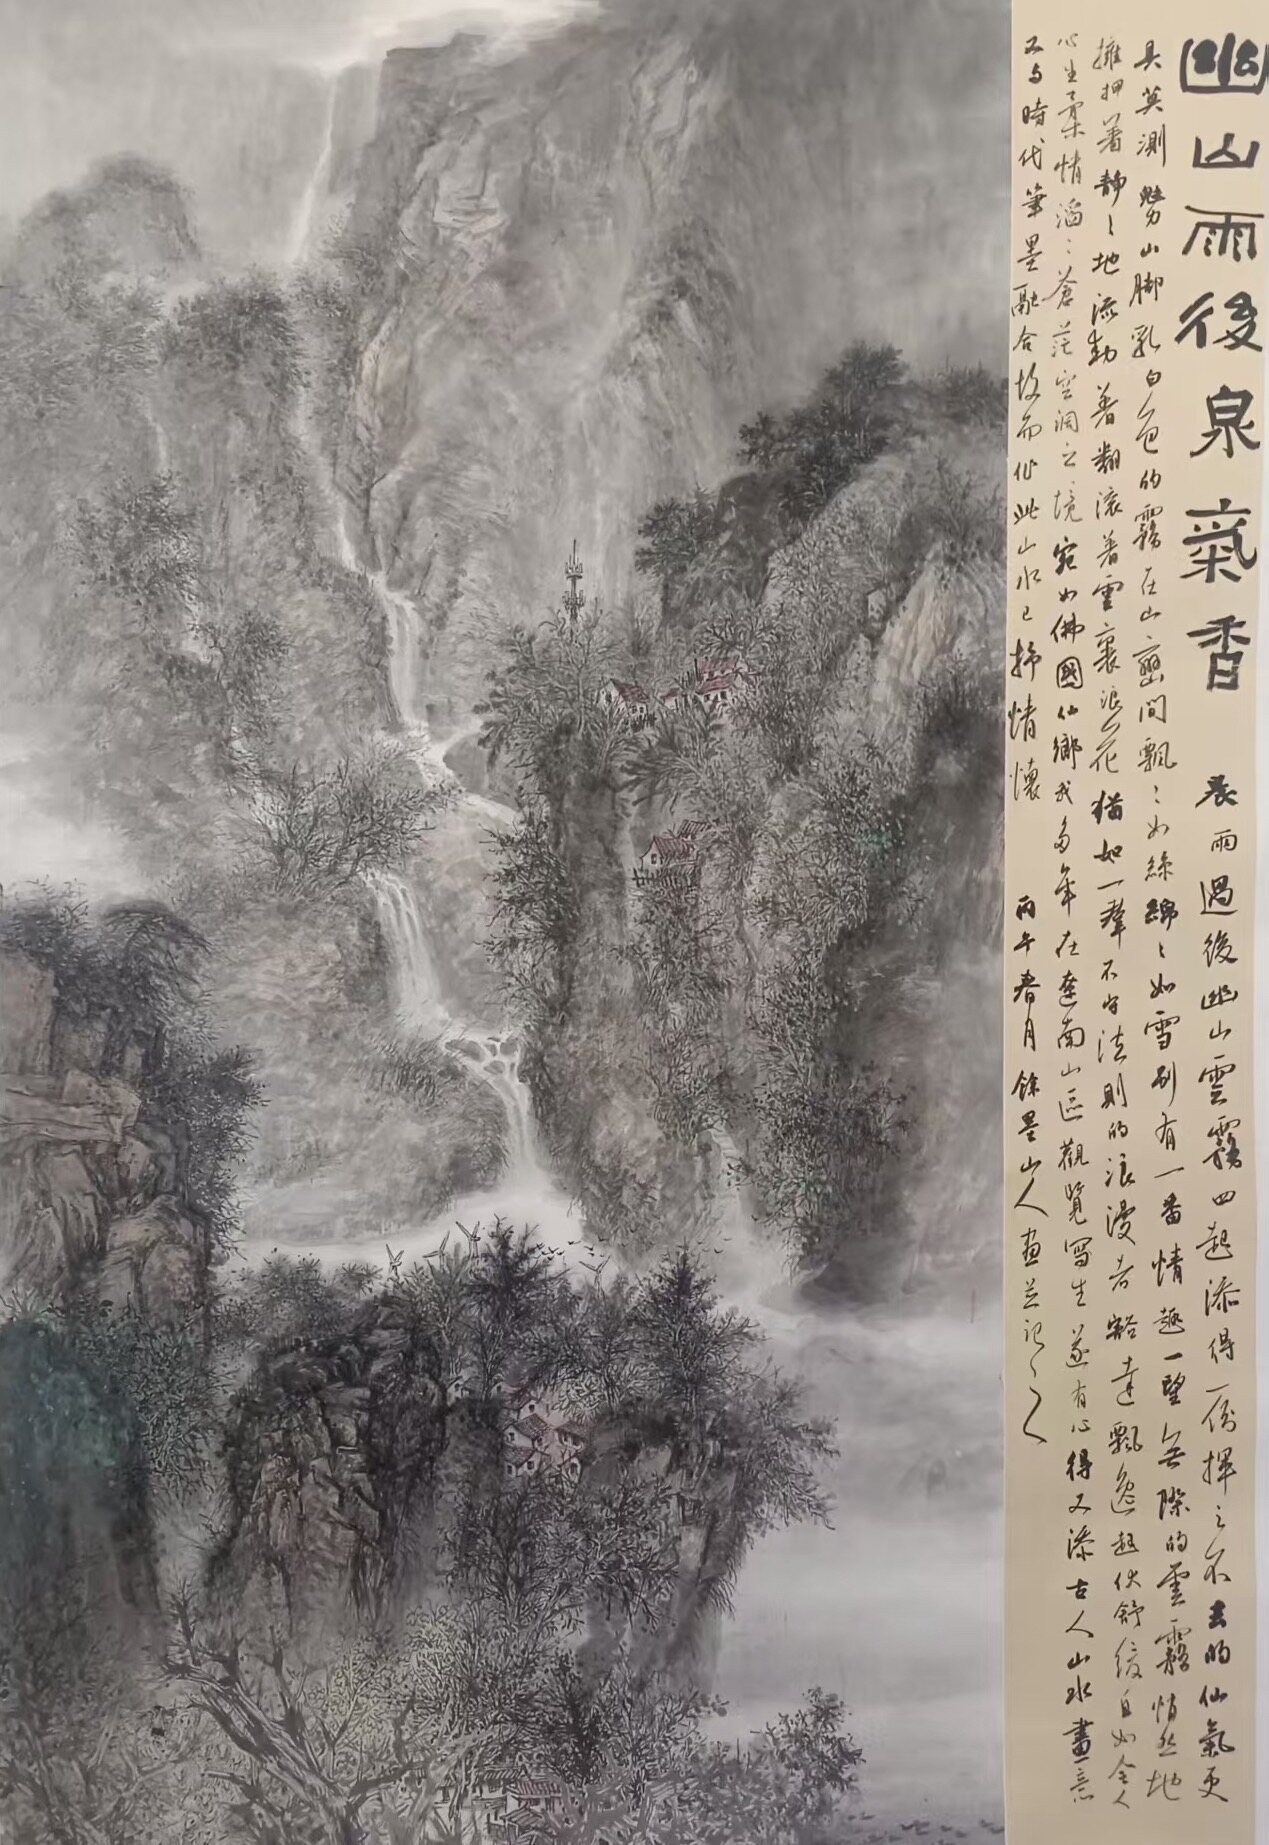 幽山雨後泉氣香
晨雨過後幽山雲霧四起添得一份揮之不去的仙氣更
具莫測 山腳乳白色的霧在山巒間飄〻如絲綿〻如雪別有一番情趣一望無際的雲霧悄然地
擁押著靜〻地流動著翻滚著雲裏浪花猶如一羣不守法則的浪漫者豁達飄逸起伏舒緩自如令人
心生柔情滔〻蒼茫空洞之境宛如佛國仙鄉我多年在遼南山區觀覽寫生遂有心得又添古人山水畫意
又与時代筆墨融合故而作此山水已抒情懷
丙午春月餘墨山人畫並記之